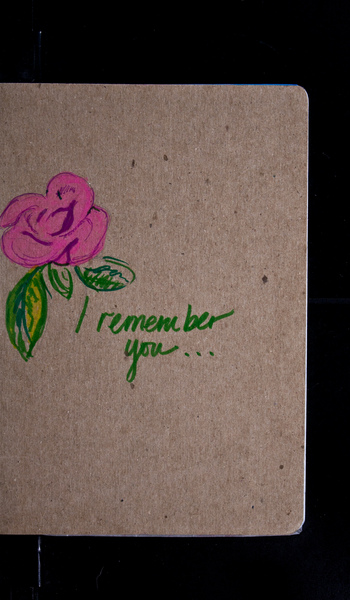 I remember
you...